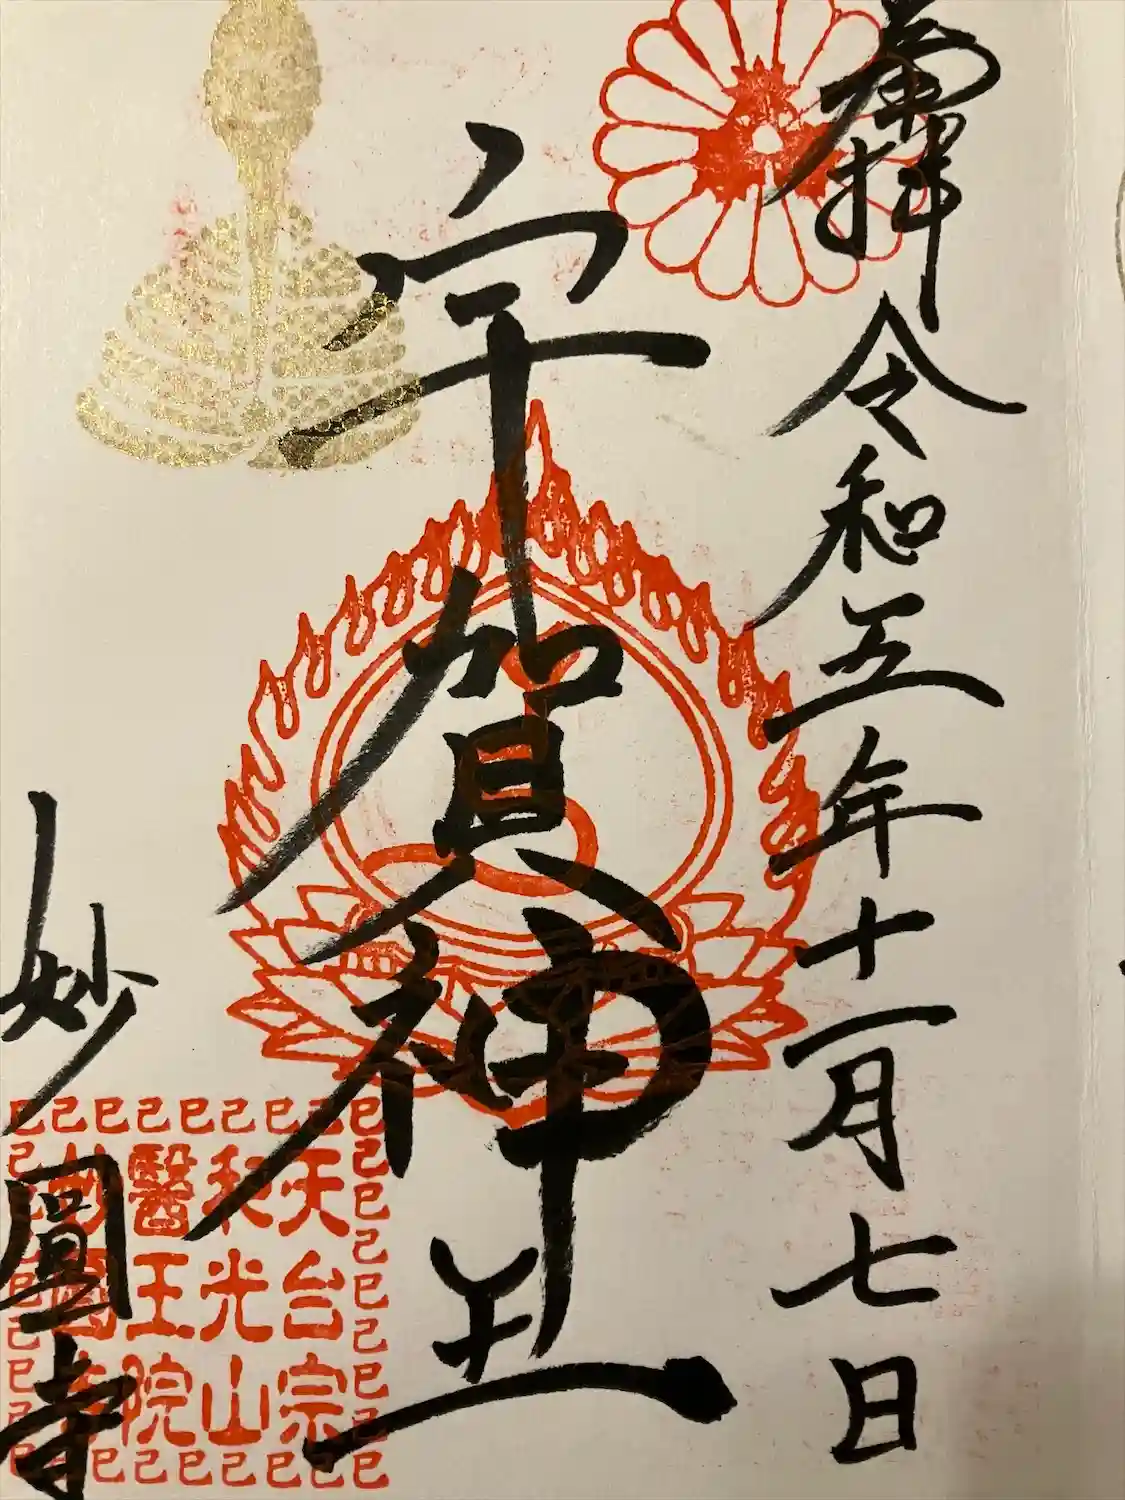 奉拝 令和五年十一月七日
宇賀神王
妙圓寺
天台宗
和光山
醫王院
妙圓寺